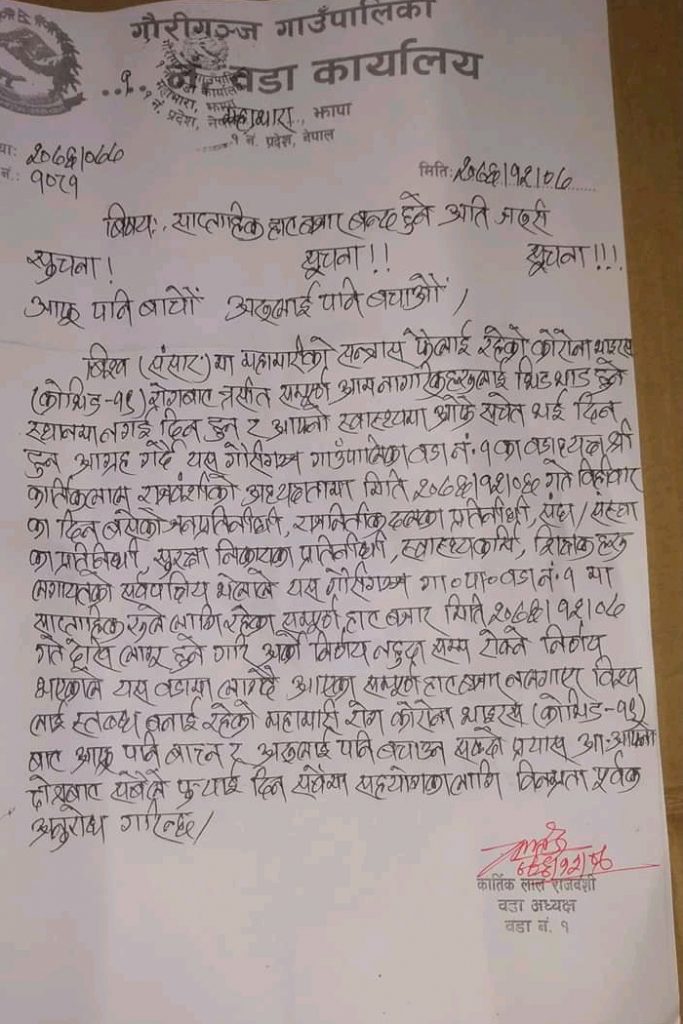 गौरीगञ्ज गाउँपालिका
१ नं. वडा कार्यालय
महाभारा, झापा
१ नं. प्रदेश, नेपाल
या: २०७६/०७७
नं.: १०८१
मिति: २०७६/१२/०७
बिषय:- साप्ताहिक हाट बजार बन्द हुने अति जरुरी
सुचना ! सूचना !! सूचना !!!
आफू पनि बाचौं अरुलाई पनि बचाऔं /
बिश्व (संसार) मा महामारीको सन्त्रास फैलाई रहेको कोरोना भाइरस
(कोभिड-१९) रोगबाट त्रसीत सम्पूर्ण आमनागरिकहरुलाई भिडभाड हुने
स्थानमा नगई दिन हुन र आफ्नो स्वास्थ्यमा आफै सचेत भई दिन
हुन आग्रह गर्दै यस गौरीगञ्ज गाउँपालिका वडा नं. १ का वडाध्यक्ष श्री
कार्तिकलाल राजवंशीको अध्यक्षतामा मिति २०७६/१२/०६ गते बिहीवार
का दिन बसेको जनप्रतिनीधी, राजनितीक दलका प्रतिनीधी, संघ/संस्था
का प्रतिनिधी, सुरक्षा निकायका प्रतिनीधी, स्वास्थ्यकर्मि, शिक्षक हरु
लगायतको सर्वपक्षिय भेलाले यस गौरीगञ्ज गा०पा० वडा नं. १ मा
साप्ताहिक रुले लागि रहेका सम्पूर्ण हाट बजार मिति २०७६/१२/०७
गते देखि लागू हुने गरि अर्को निर्णय नहुदा सम्म रोक्ने निर्णय
भएकाले यस वडामा लाग्दै आएका सम्पूर्ण हाट बजार नलगाएर विश्व
लाई स्तब्ध बनाई रहेको महामारी रोग कोरोना भाइरस (कोभिड-१९)
बाट आफू पनि बाच्न र अरुलाई पनि बचाउन सक्दो प्रयास आ-आफ्नो
ठाउँबाट सबैले पुऱ्याई दिन सबैमा सहयोगका लागि विनम्रता पूर्वक
अनुरोध गरिन्छ /
०७६/१२/०७
कार्तिक लाल राजवंशी
वडा अध्यक्ष
वडा नं. १